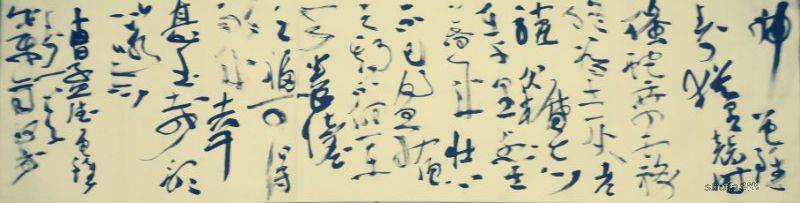 神龜雖
壽猶有競時
騰蛇乘霧
終為土灰老
驥伏櫪志
在千里烈士
暮年壯心
不已盈縮
之期不但在
天養怡
之福可得
永年幸
甚至哉歌
以詠志
曹孟德龜雖